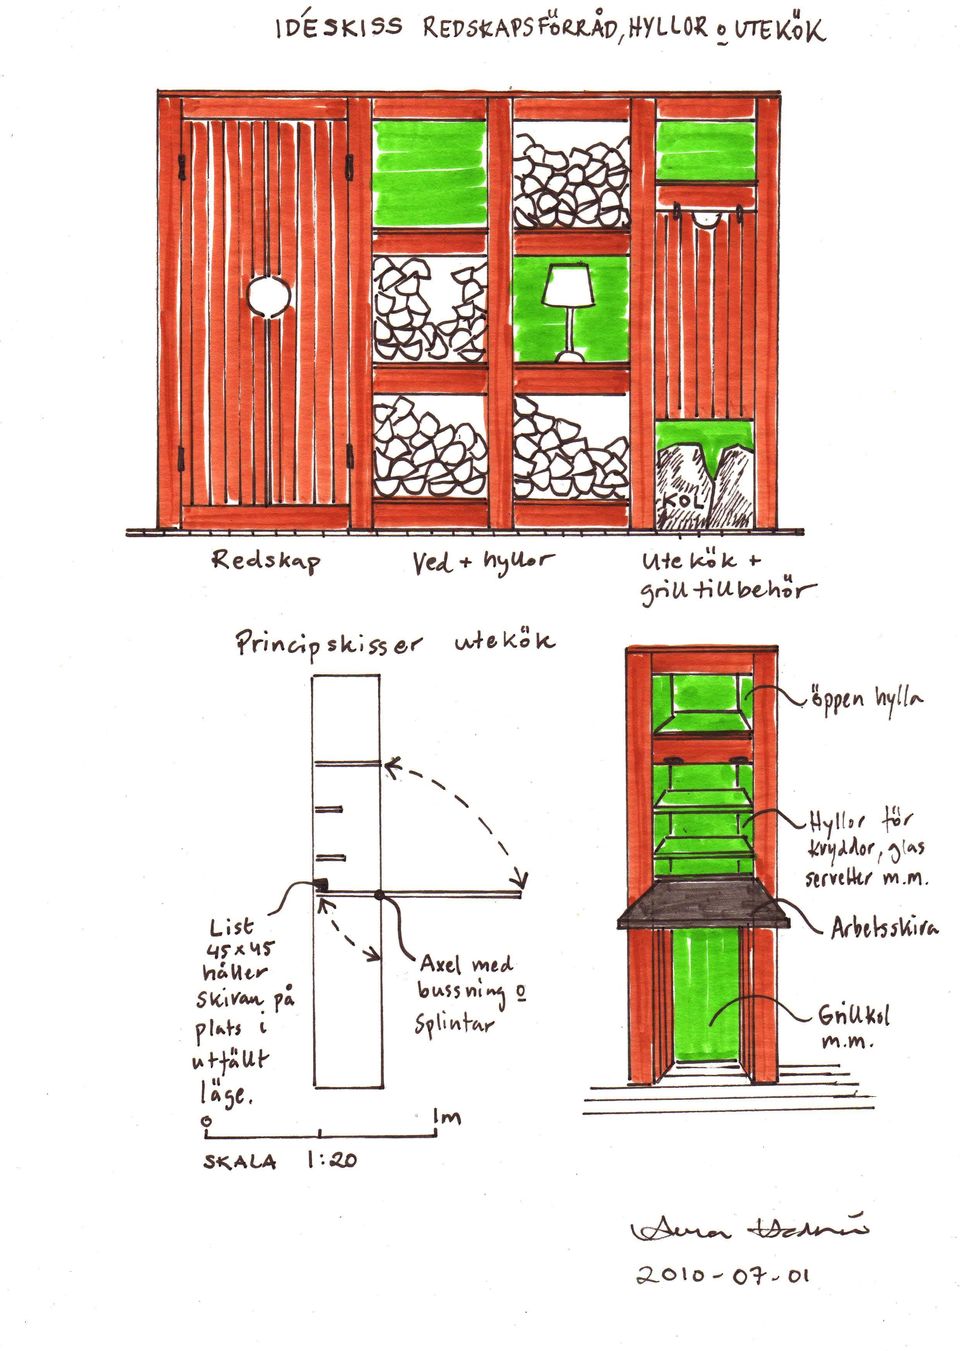 IDÉSKISS REDSKAPSFÖRRÅD, HYLLOR o UTEKÖK
KOL
Redskap
Ved + hyllor
Utekök +
grilltillbehör
Principskisser utekök
öppen hylla
Hyllor för
kryddor, glas
servetter m.m.
Arbetsskiva
Grillkol
m.m.
List
45x45
håller
skivan på
plats i
utfällt
läge.
Axel med
bussning o
splintar
0 1m
SKALA 1:20
2010-07-01